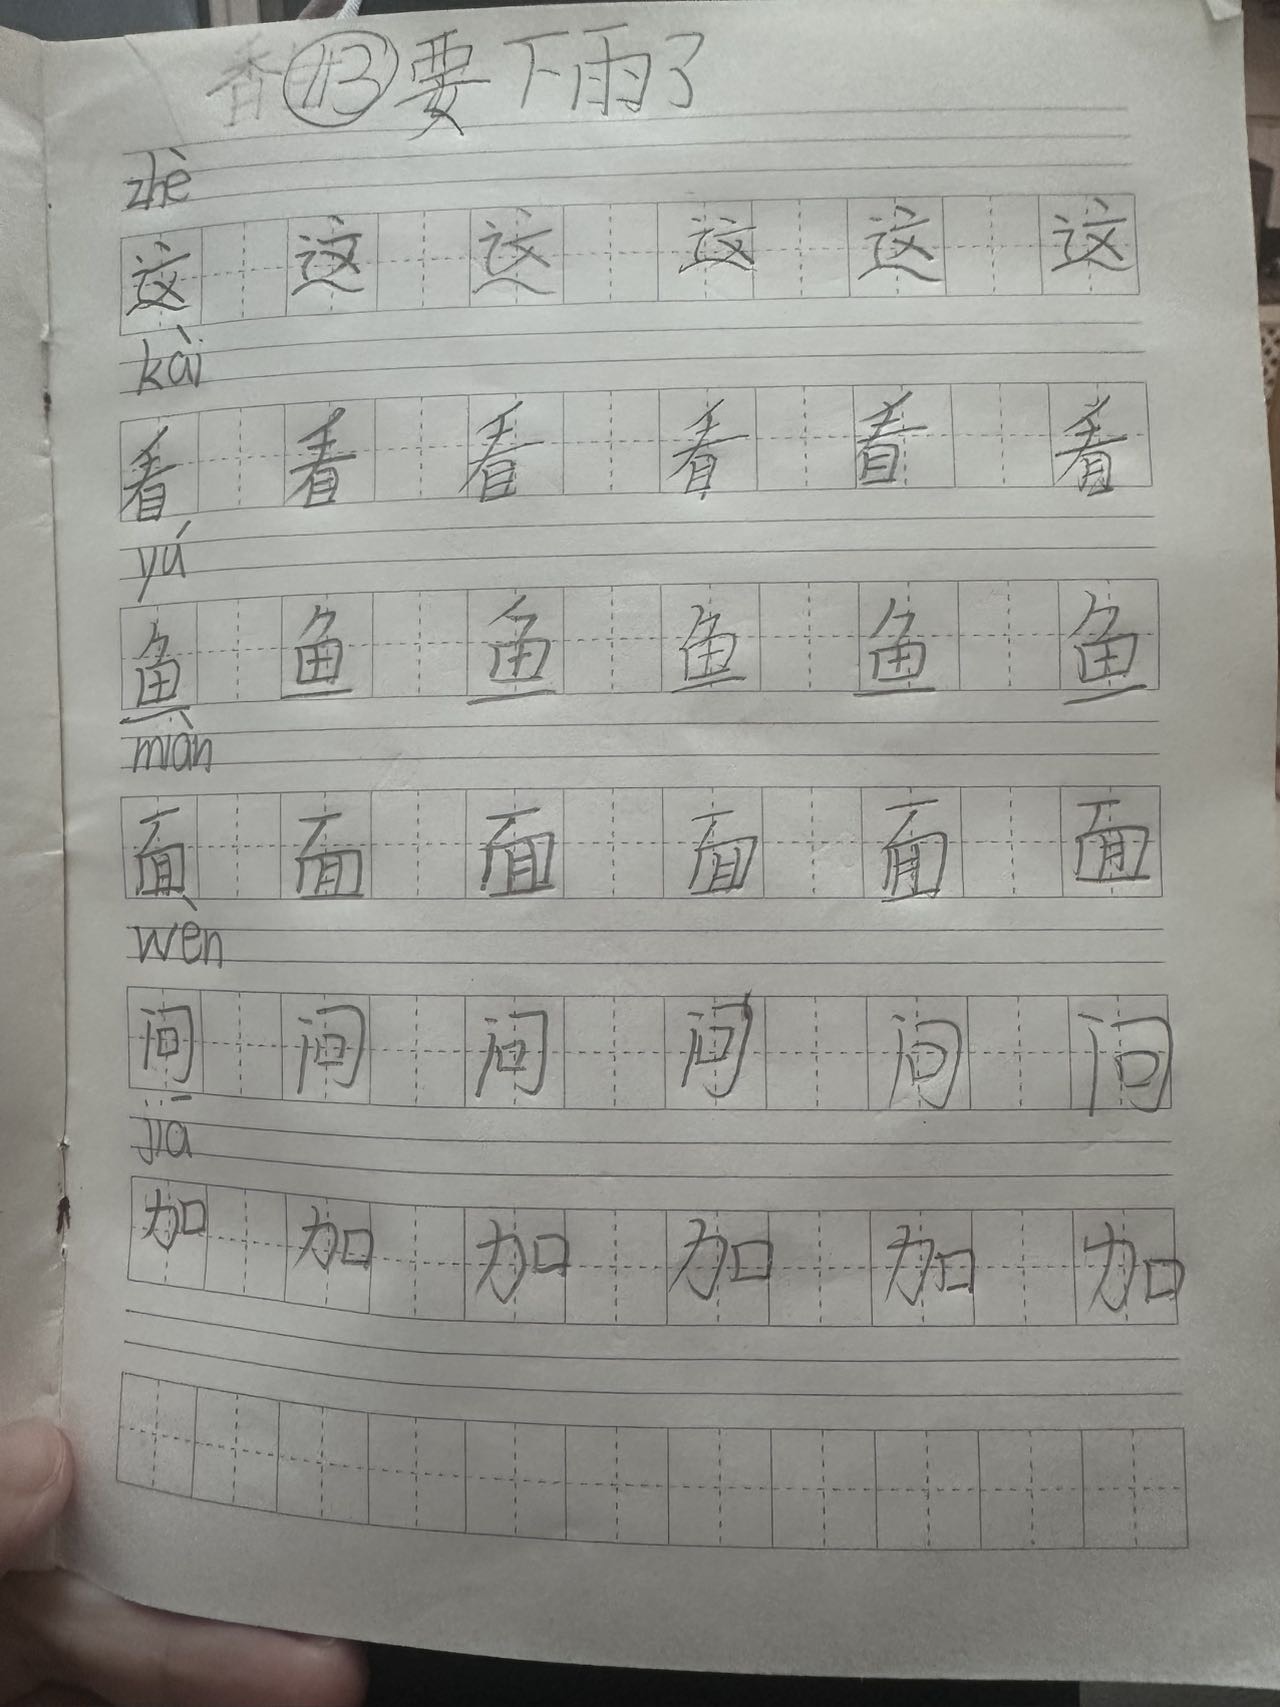 香 #13 要下雨了
zhè
这 这 这 这 这 这
kài
看 看 看 看 看 看
yú
鱼 鱼 鱼 鱼 鱼 鱼
miàn
面 面 面 面 面 面
wèn
问 问 问 问 问 问
jiā
加 加 加 加 加 加